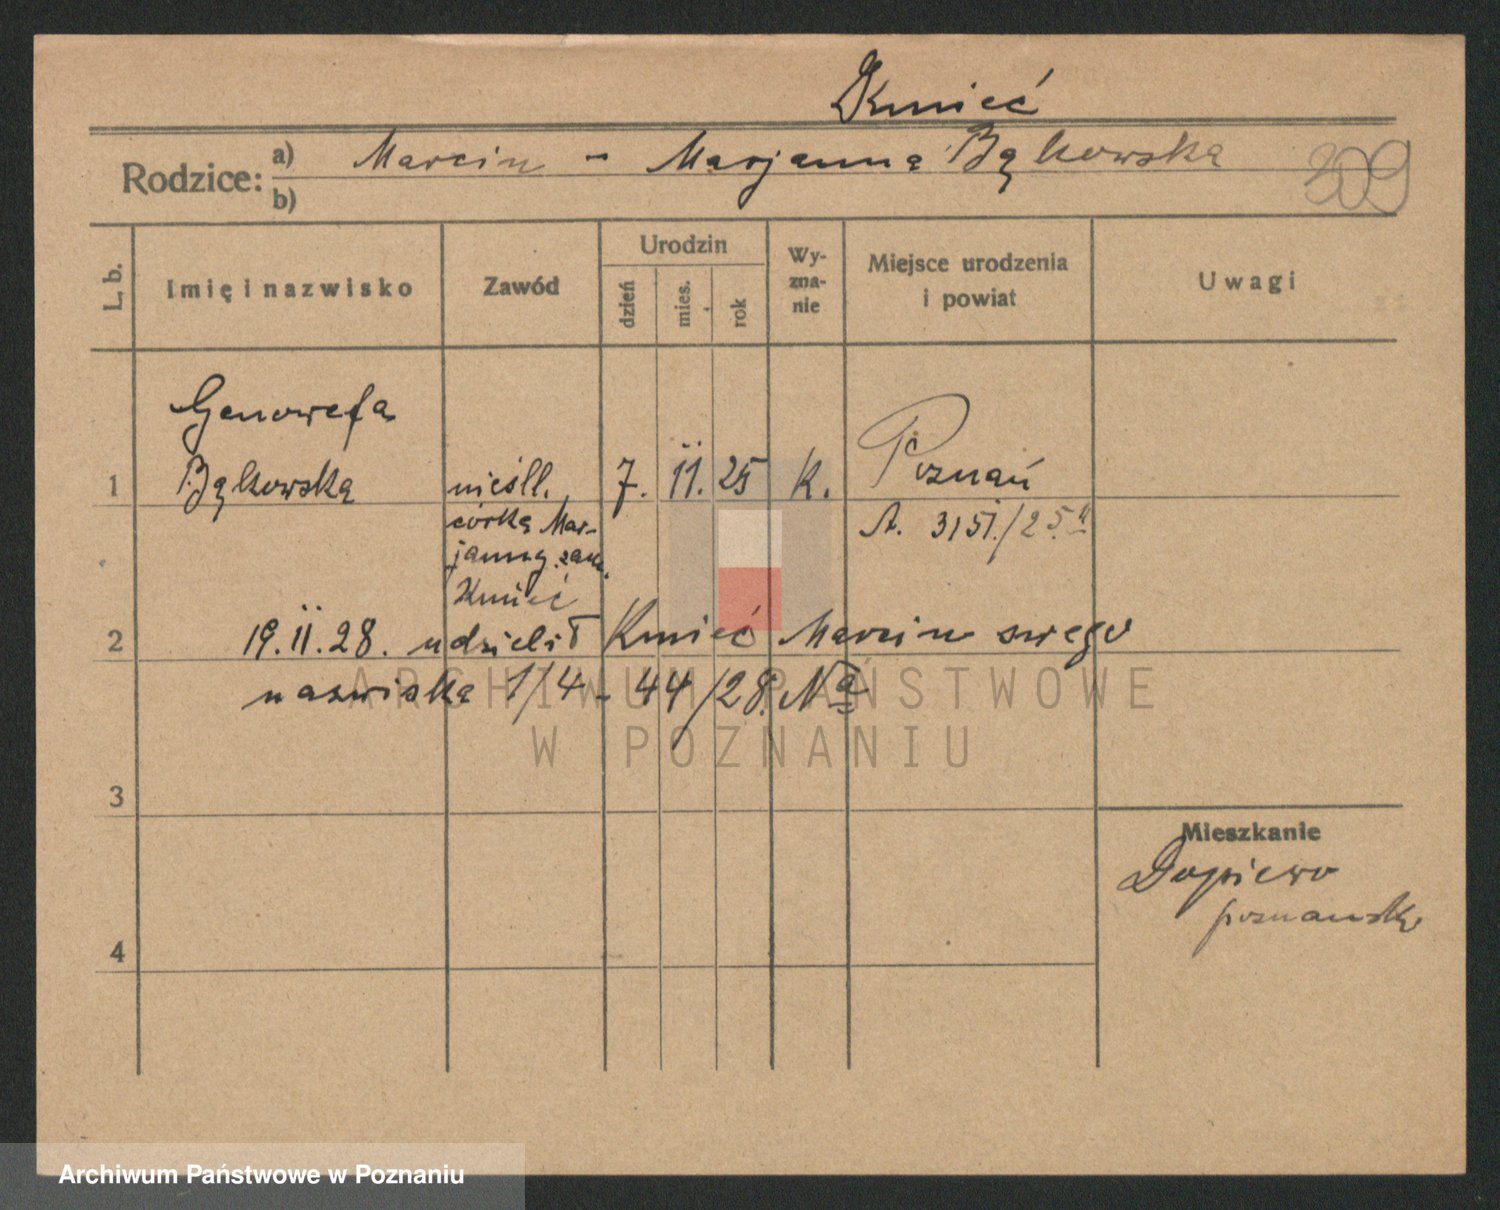 Kmieć
Rodzice: a) Marcin - Marjanna Bąkowska
b)
209
L. b. Imię i nazwisko Zawód Urodzin dzień mies. rok Wy-zna-nie Miejsce urodzenia i powiat Uwagi
Genowefa
1 Bąkowska nieśll. 7. II. 25 K. Poznań
córka Mar- A. 3151/25.
janny zam.
Kmieć
2 19.II.28. udzielił Kmieć Marcin swego
nazwiska 1/4 - 44/28. Na
ARCHIWUM PAŃSTWOWE
W POZNANIU
3
Mieszkanie
Dopiewo
poznańsk
4
Archiwum Państwowe w Poznaniu